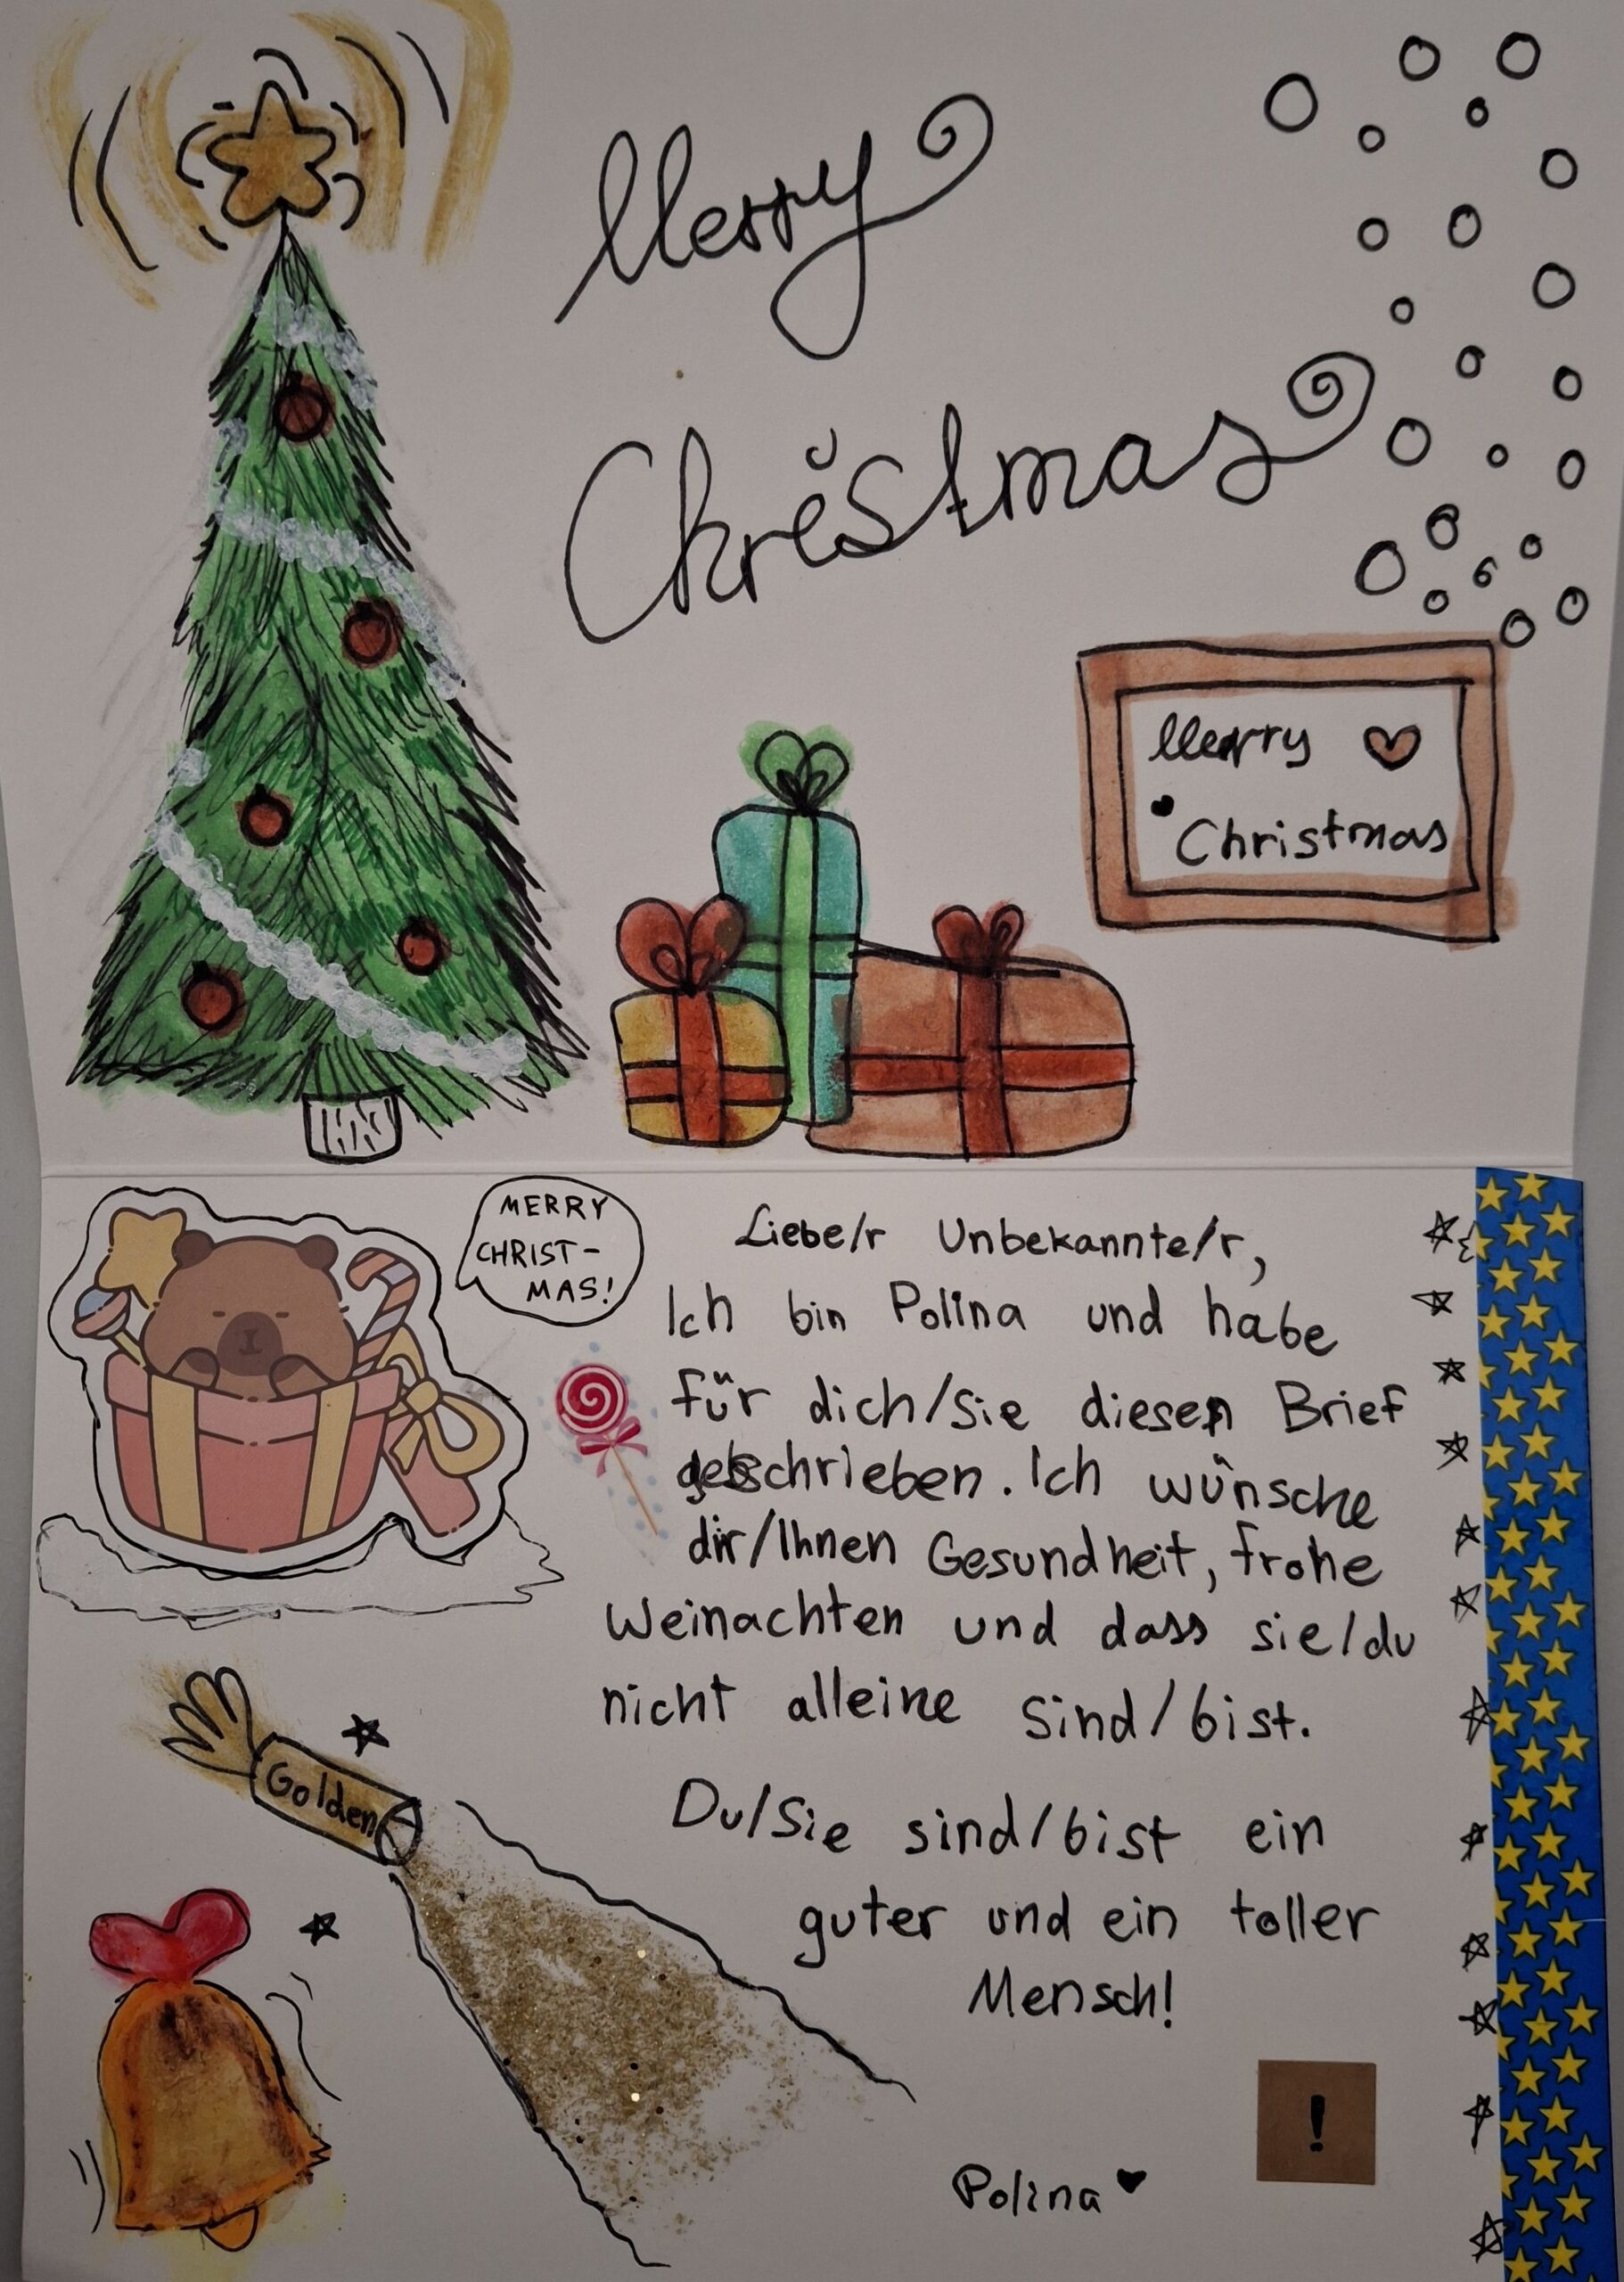 Merry
Christmas
Merry
Christmas
MERRY
CHRIST-
MAS!
Liebe/r Unbekannte/r,
Ich bin Polina und habe
für dich/sie diesen Brief
geschrieben. Ich wünsche
dir/Ihnen Gesundheit, frohe
Weinachten und dass sie/du
nicht alleine sind/bist.
Golden
Du/Sie sind/bist ein
guter und ein toller
Mensch!
!
Polina